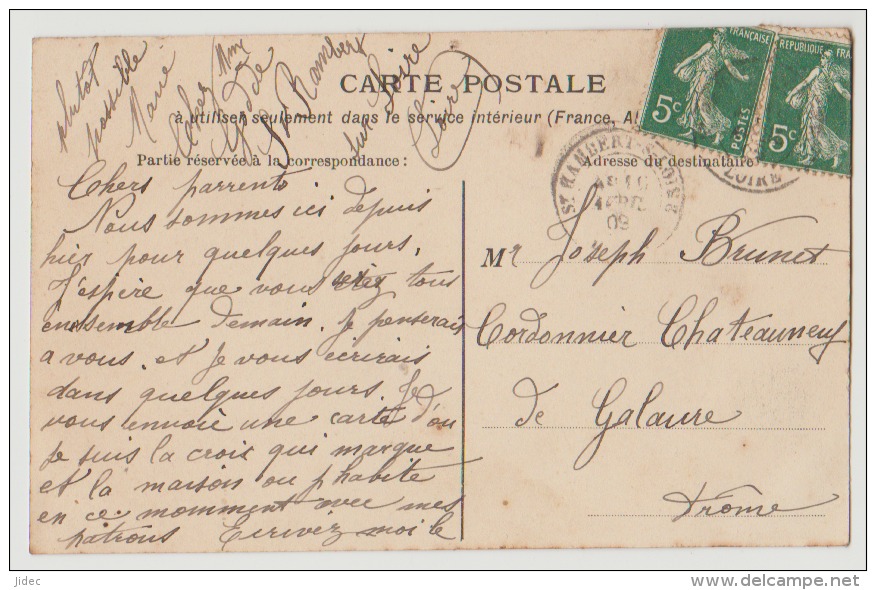 plutot
possible
Marie
chez Mme
St Rambert
sur Loire
Loire
CARTE POSTALE
à utiliser seulement dans le service intérieur (France, Al
Partie réservée à la correspondance:
Adresse du destinataire
FRANÇAISE
5c
POSTES
REPUBLIQUE FRA
5c
ST RAMBERT-S-LOIRE
09
LOIRE
Chers parrents
Nous sommes ici depuis
hier pour quelques jours.
J'espère que vous serez tous
enssemble demain. Je penserais
a vous. et Je vous ecrirais
dans quelques jours. Je
vous envoie une carte d'ou
Je suis la crois qui marque
et la maison ou j'habite
en ce momment avec mes
patrons Ecrivez moi le
Mr Joseph Brunet
Cordonnier Chateauneuf
de Galaure
Drôme
Jidec
delcampe.net